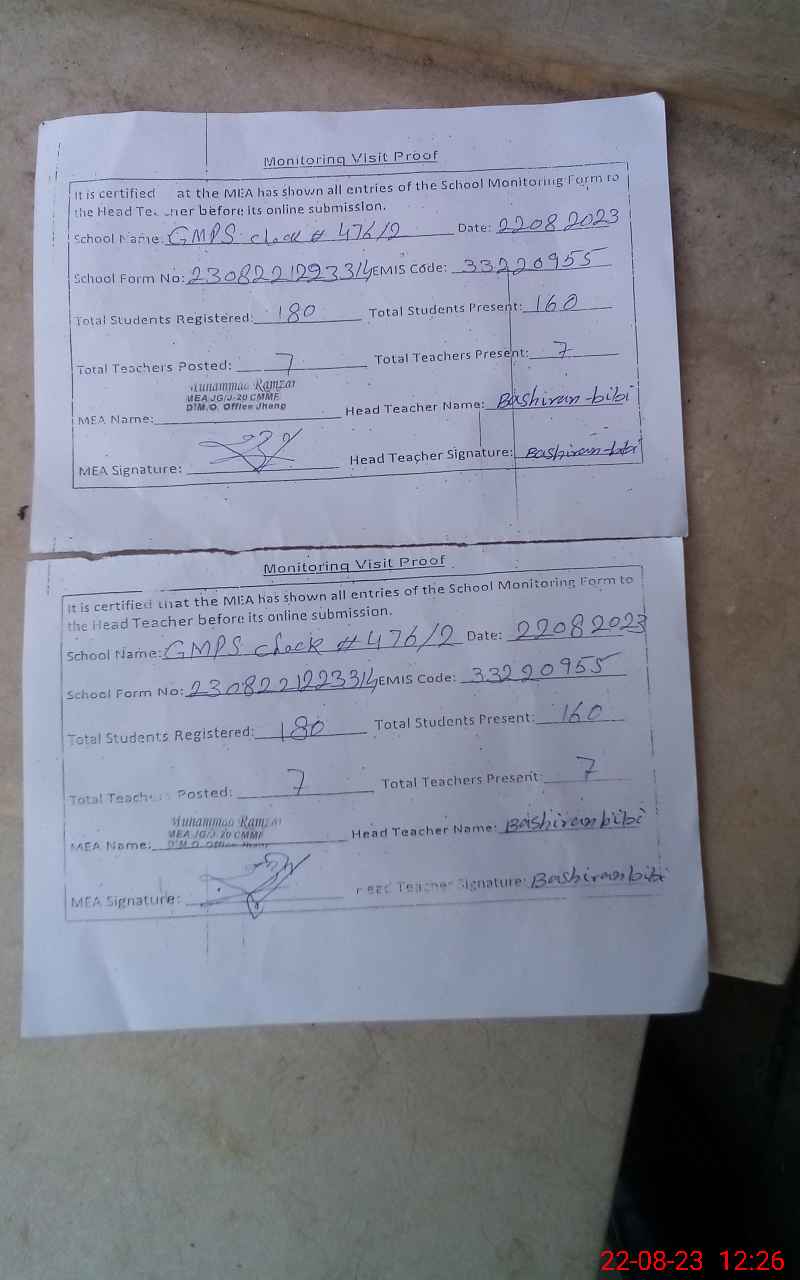 Monitoring Visit Proof
It is certified at the MEA has shown all entries of the School Monitoring Form to
the Head Teacher before its online submission.
School Name: GMPS chock # 476/2 Date: 22082023
School Form No: 23082212233 EMIS Code: 33220955
Total Students Registered: 180 Total Students Present: 160
Total Teachers Posted: 7 Total Teachers Present: 7
Muhammad Ramzan
MEA JG/J-20 CMMF
D.M.O. Office Jhang
MEA Name: Head Teacher Name: Bashiran bibi
MEA Signature: Head Teacher Signature: Bashiran bibi
Monitoring Visit Proof
It is certified that the MEA has shown all entries of the School Monitoring Form to
the Head Teacher before its online submission.
School Name: GMPS chock # 476/2 Date: 22082023
School Form No: 23082212233 EMIS Code: 33220955
Total Students Registered: 180 Total Students Present: 160
Total Teachers Posted: 7 Total Teachers Present: 7
Muhammad Ramzan
MEA JG/J-20 CMMF
D.M.O. Office Jhang
MEA Name: Head Teacher Name: Bashiran bibi
MEA Signature: Head Teacher Signature: Bashiran bibi
22-08-23 12:26